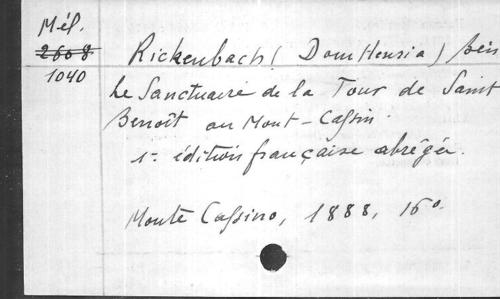 Mél.
2608
1040
Rickenbach (Dom Heusia)
Le Sanctuaire de la Tour de Saint
Benoît au Mont-Cassin.
1e édition française abrégée.
Monte Cassino, 1888, 16o.